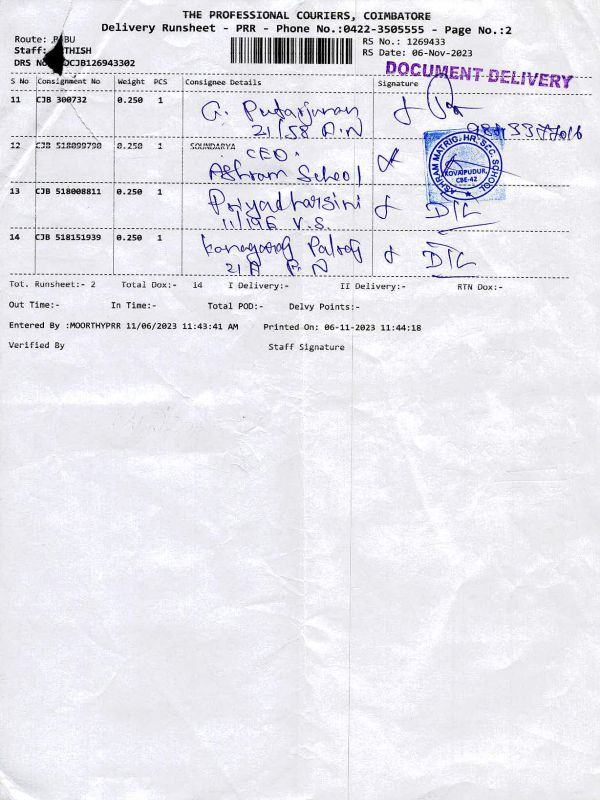 THE PROFESSIONAL COURIERS, COIMBATORE
Delivery Runsheet - PRR - Phone No.:0422-3505555 - Page No.:2
Route: BU
Staff: THISH
DRS No CJB126943302
RS No.: 1269433
RS Date: 06-Nov-2023
DOCUMENT DELIVERY
S No Consignment No Weight PCS Consignee Details Signature
11 CJB 300732 0.250 1 G.
21/58 P.N
12 CJB 518099790 0.250 1 SOUNDARYA
CEO.
Ashram School
ASHRAM MATRIC. HR. SEC. SCHOOL
KOVAIPUDUR,
CBE-42
13 CJB 518008811 0.250 1 Priyadharsini
11/196 V.S.
14 CJB 518151939 0.250 1
P.N
Tot. Runsheet:- 2 Total Dox:- 14 I Delivery:- II Delivery:- RTN Dox:-
Out Time:- In Time:- Total POD:- Delvy Points:-
Entered By :MOORTHYPRR 11/06/2023 11:43:41 AM Printed On: 06-11-2023 11:44:18
Verified By Staff Signature